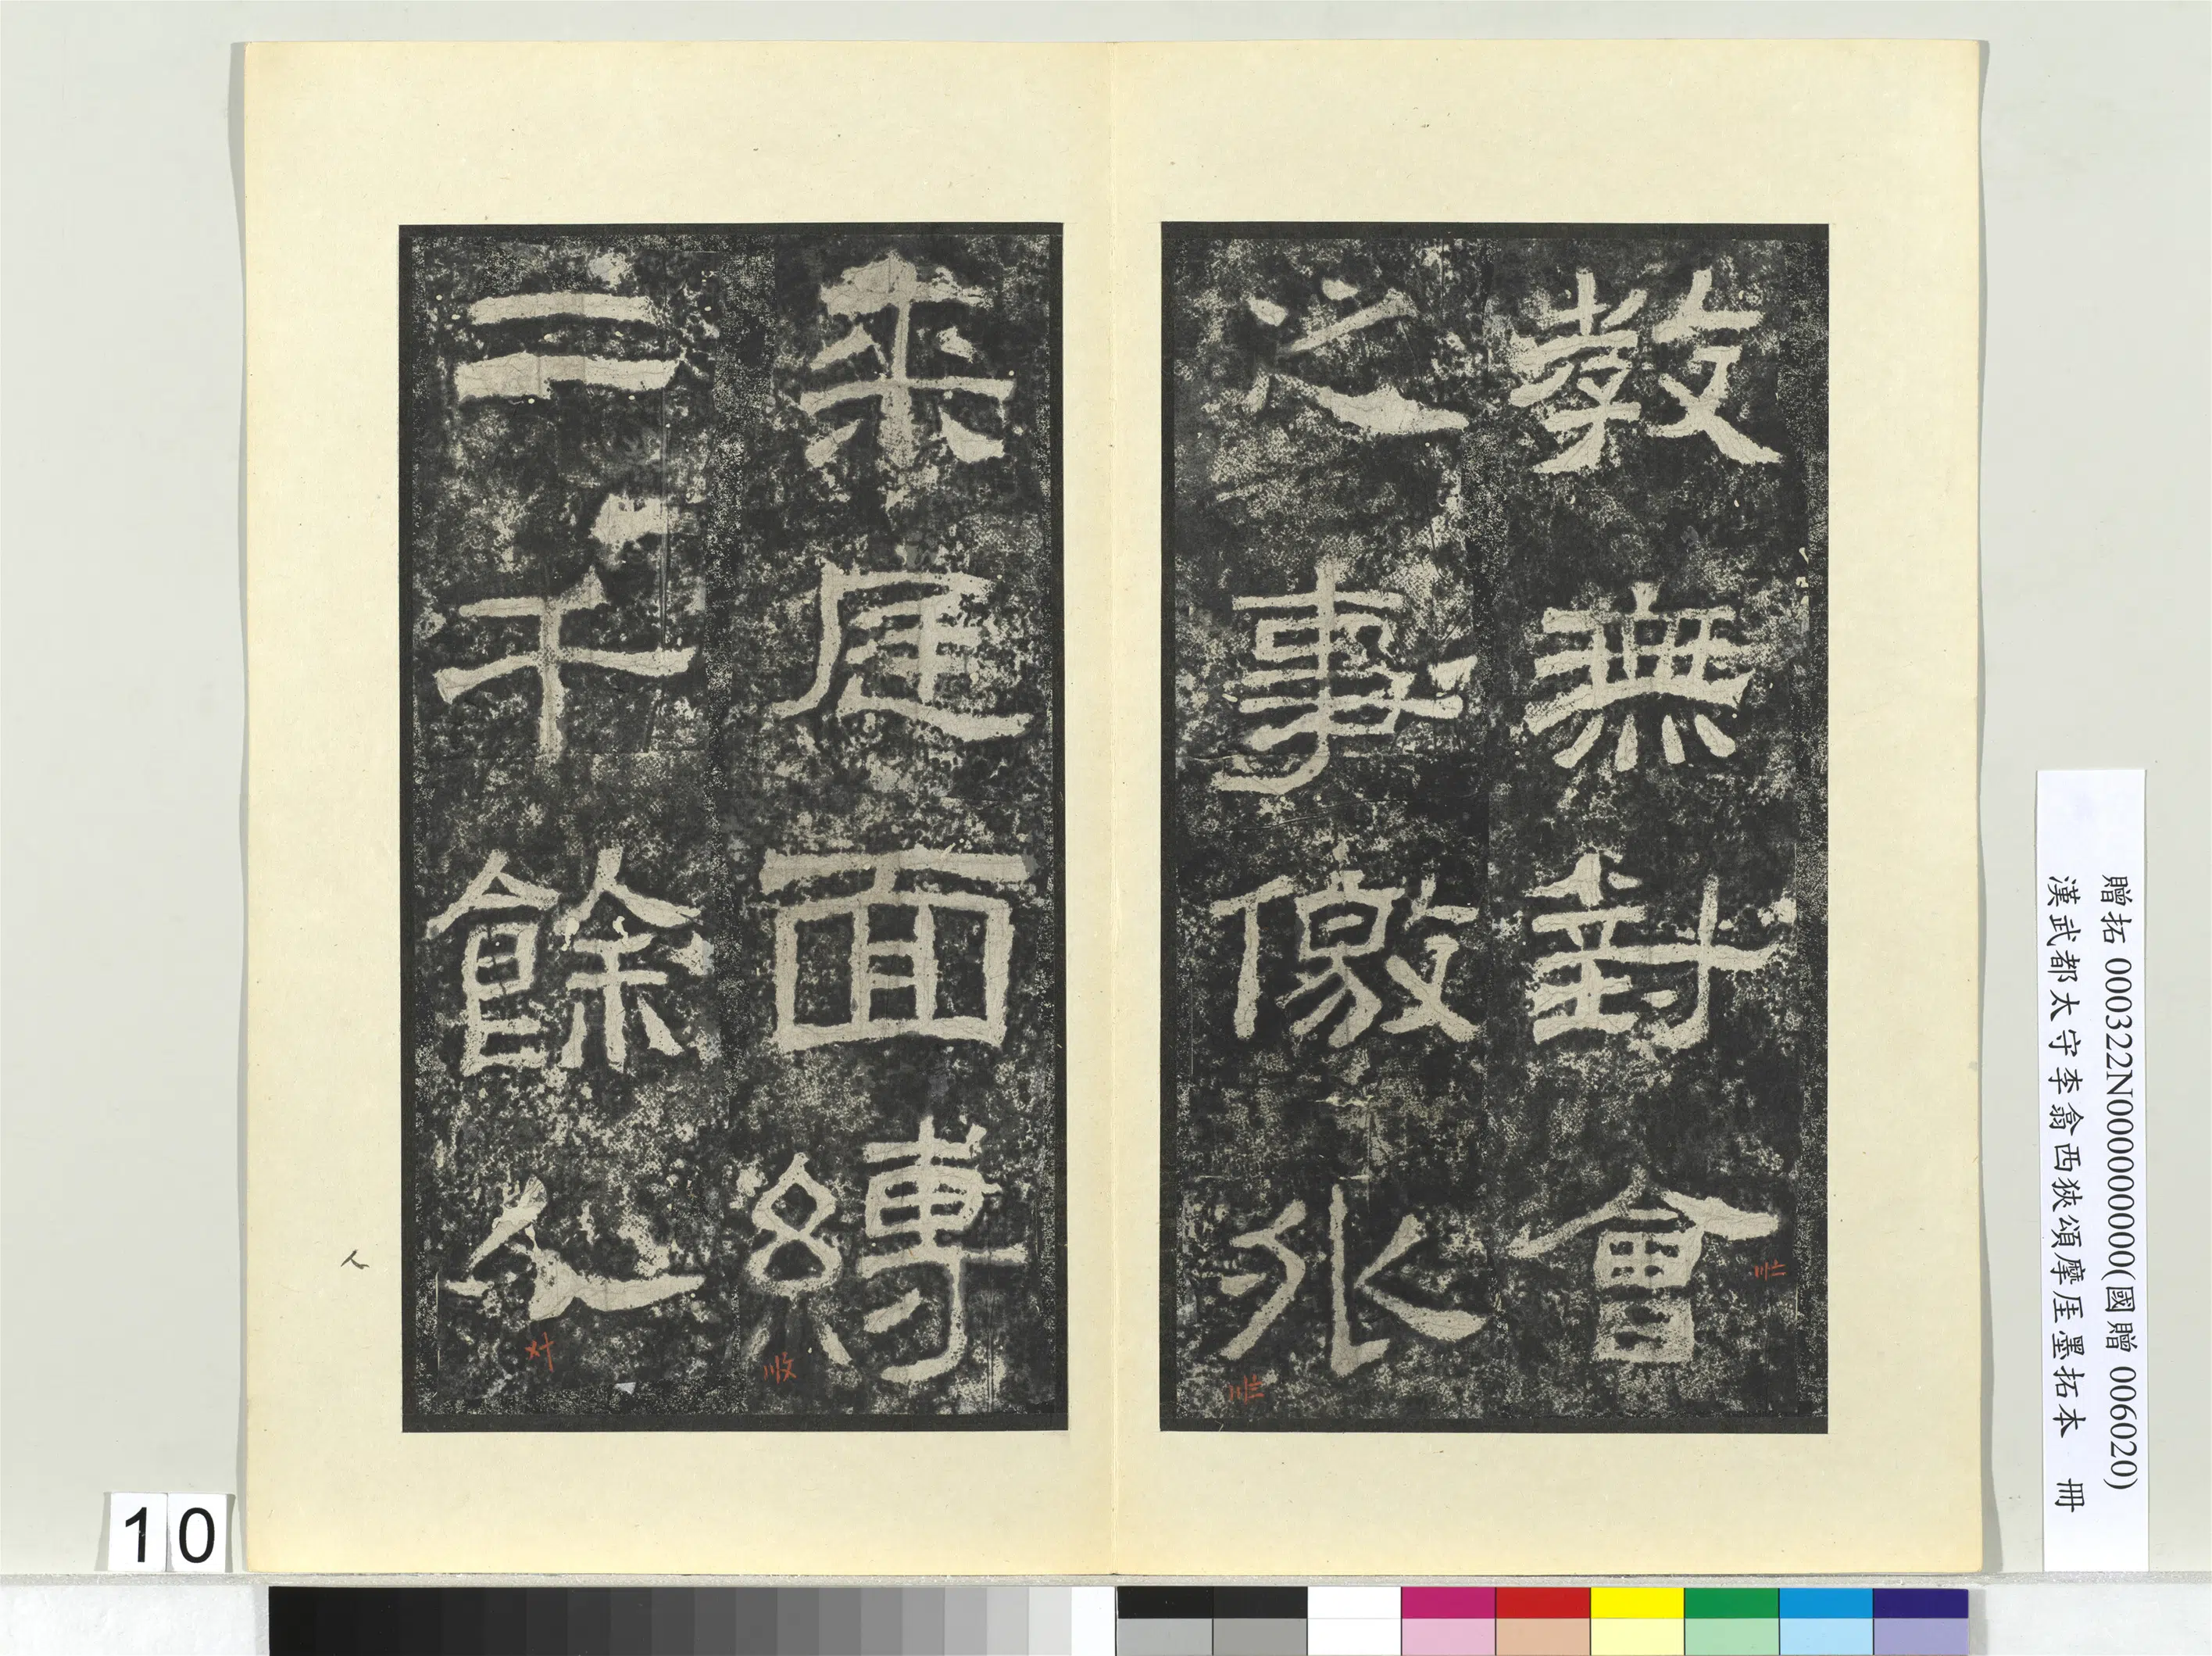 教無對會
之事儌外
来庭面縛
二千餘人
10
贈拓 000322N000000000(國贈 006020)
漢武都太守李翕西狹頌摩厓墨拓本 冊